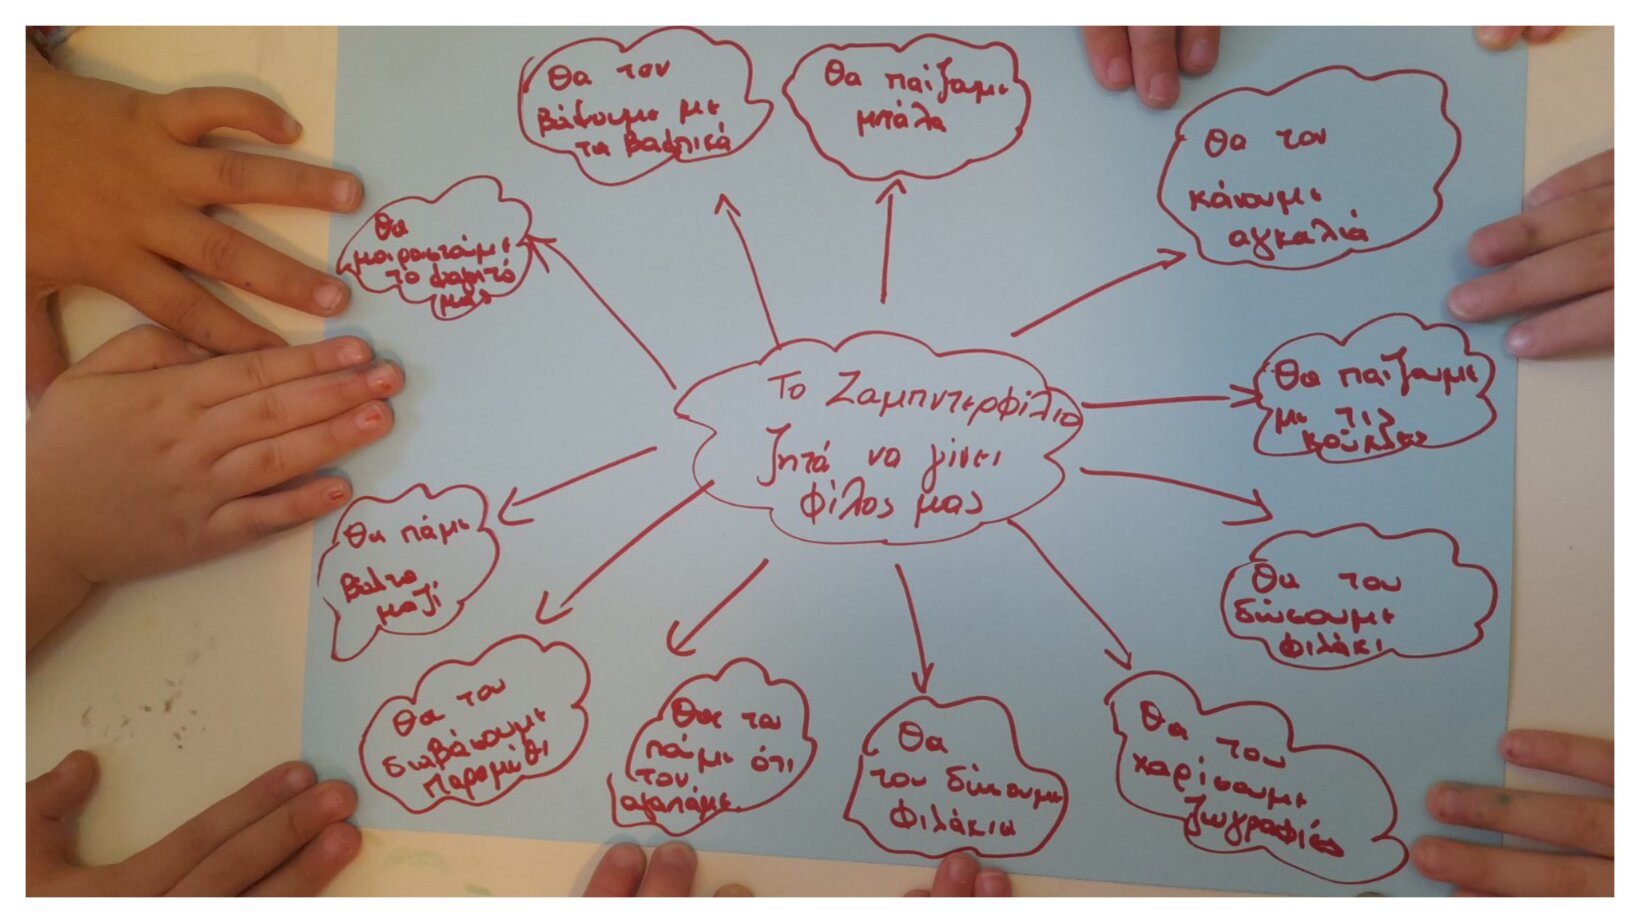 Θα τον
βάψουμε με
τα βαφτικά
Θα παίζαμε
μπάλα
Θα τον
κάνουμε
αγκαλιά
Θα
μοιραστούμε
το φαγητό
μας
Το Ζαμπντερφίλιο
ζητά να γίνει
φίλος μας
Θα παίζουμε
με τις
κούκλες
Θα πάμε
βόλτα
μαζί
Θα του
δώσουμε
φιλάκι
Θα του
διαβάσουμε
παραμύθι
Θα του
πούμε ότι
τον
αγαπάμε
Θα
του δώσουμε
φιλάκια
Θα του
χαρίσουμε
ζωγραφιές